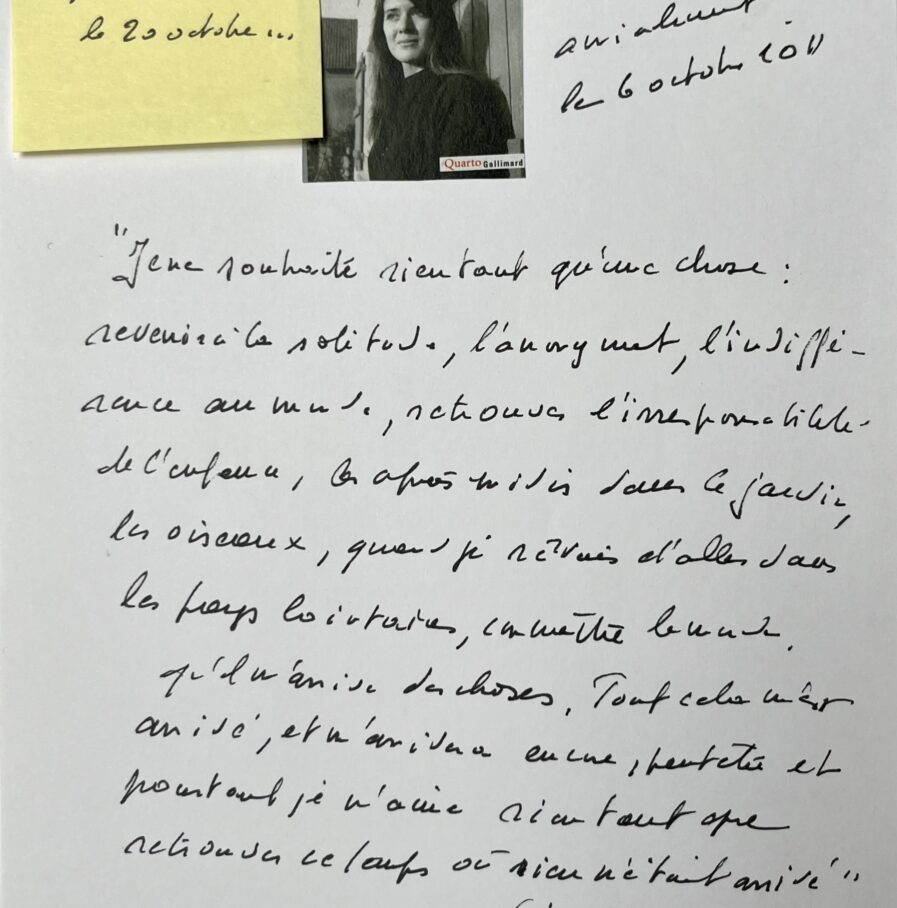 le 20 octobre...
amicalement
le 6 octobre 2011
Quarto Gallimard
"Je ne souhaite rien tant qu'une chose :
revenir à la solitude, l'anonymat, l'indiffé-
rence au monde, retrouver l'irresponsabilité
de l'enfance, les après-midis dans le jardin,
les oiseaux, quand je rêvais d'aller dans
les pays lointains, connaître le monde.
qu'il m'arrive des choses. Tout cela m'est
arrivé, et m'arrivera encore, peut-être et
pourtant je n'aime rien tant que
retrouver ce temps où rien n'était arrivé"